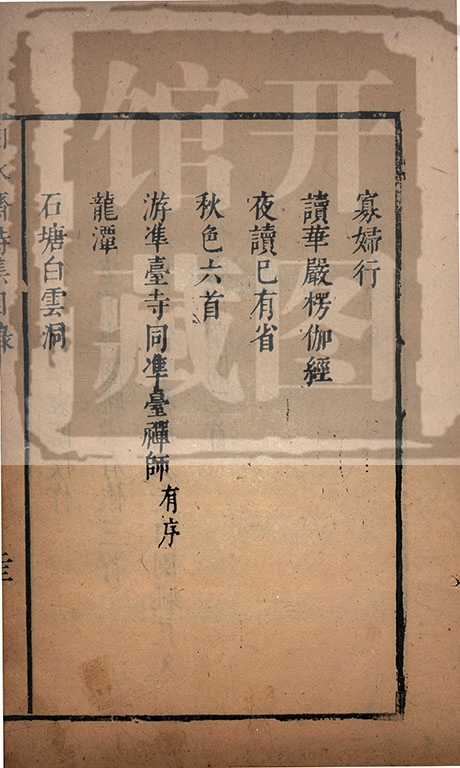 寡婦行
讀華嚴楞伽經
夜讀已有省
秋色六首
游準臺寺同準臺禪師有序
龍潭
石塘白雲洞
開圖
館藏